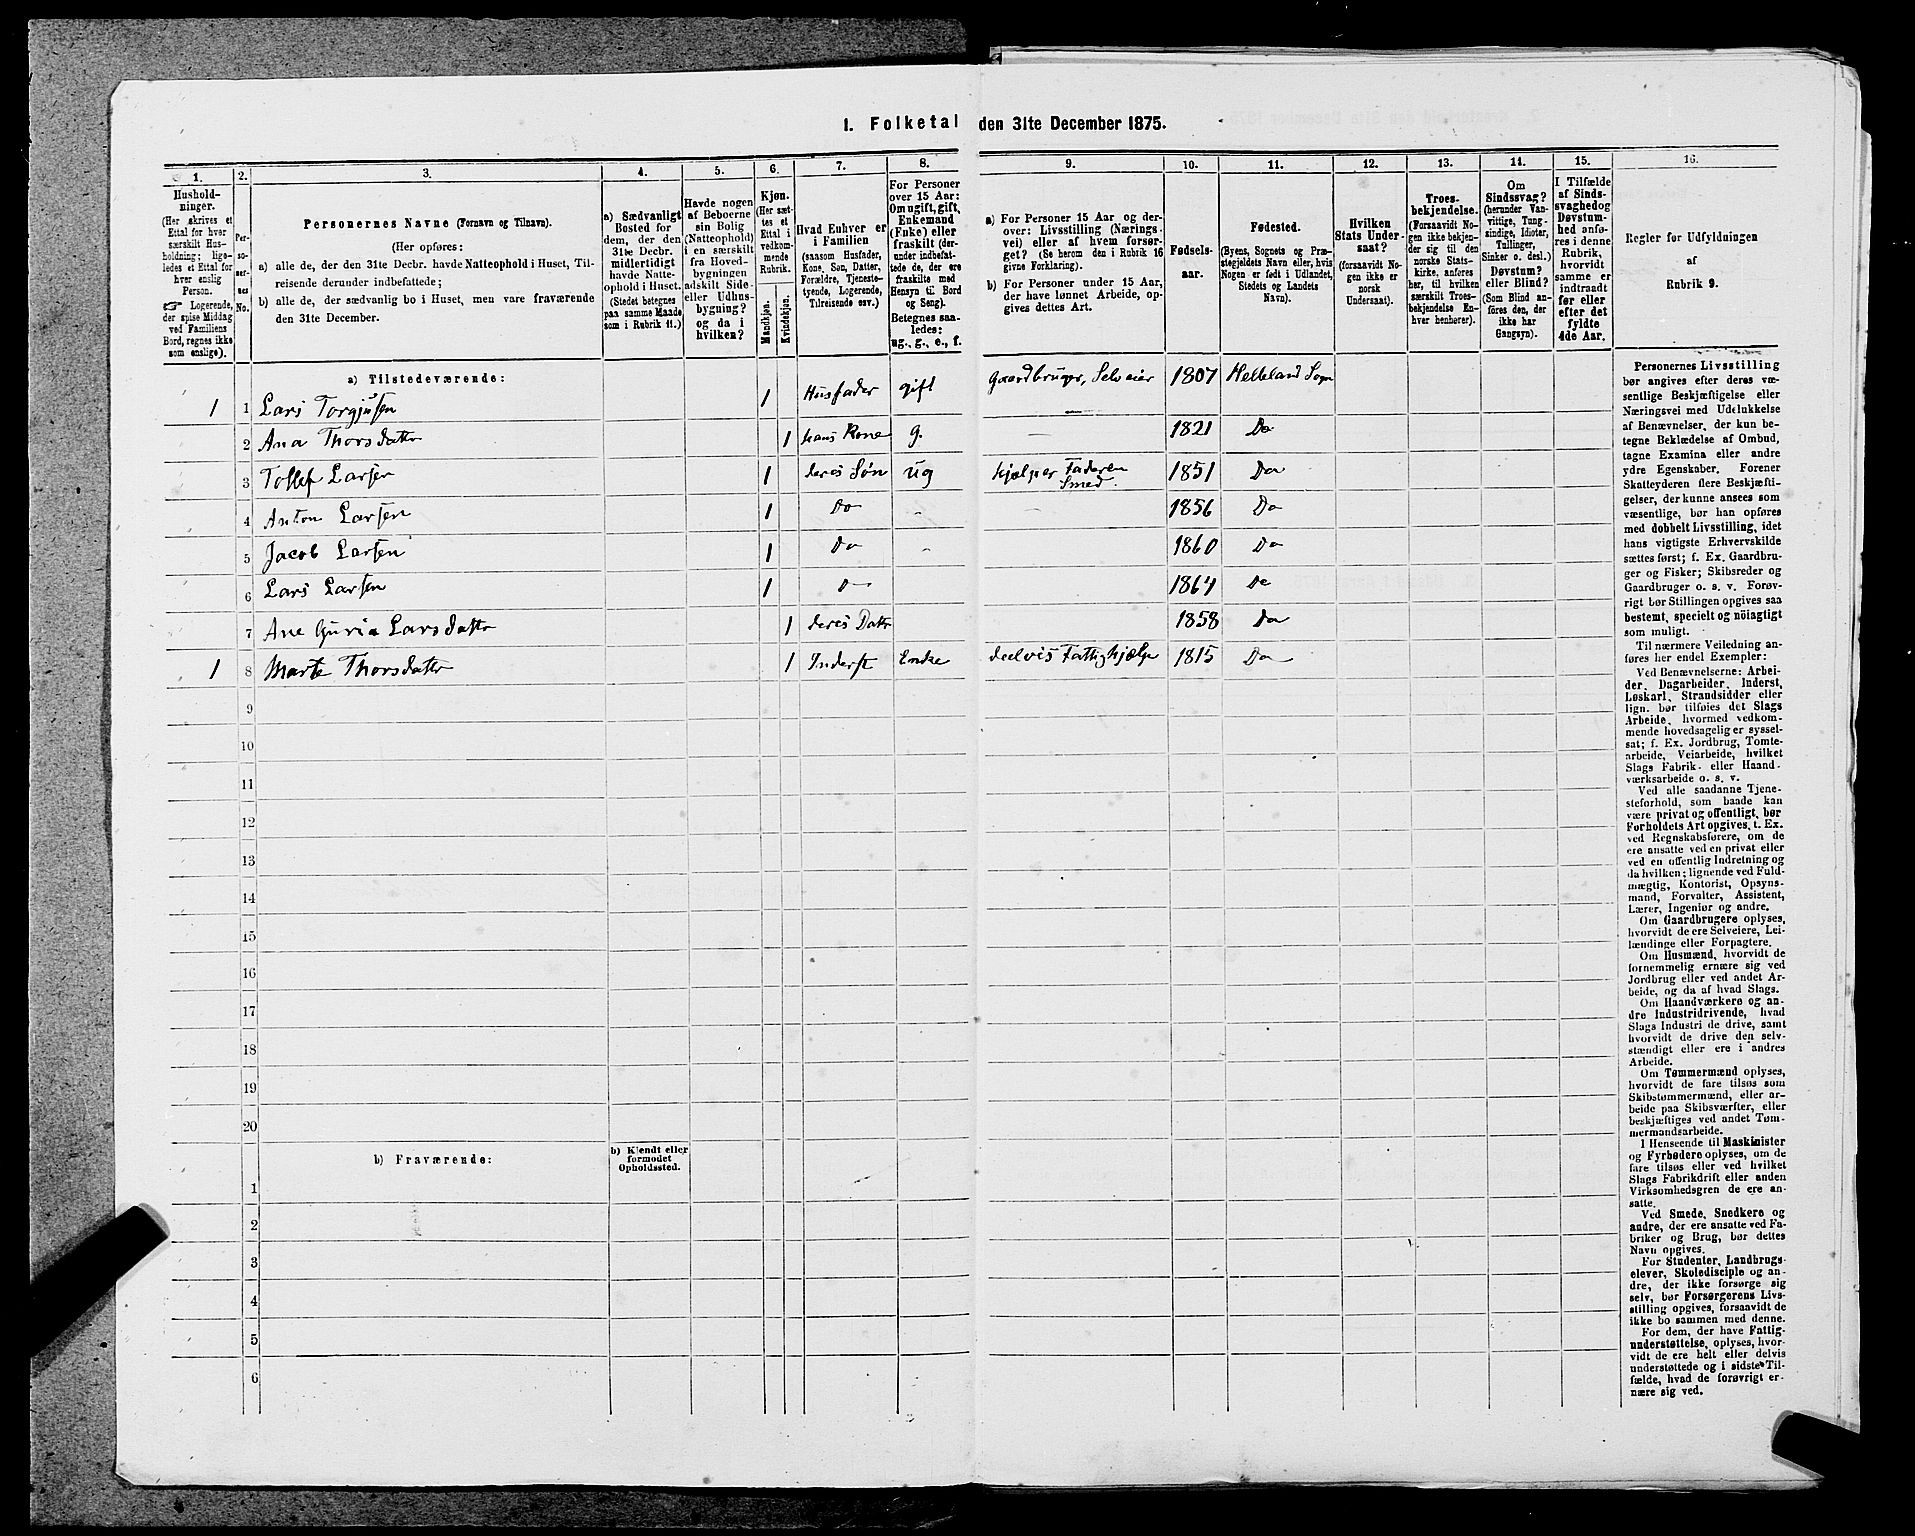 1. Folketal den 31te December 1875.
1. 2. 3. 4. 5. 6. 7. 8. 9. 10. 11. 12. 13. 14. 15. 16.
Hushold-
ninger.
(Her skrives et
Ettal for hver
særskilt Hus-
holdning; lige-
ledes et Ettal for
hver enslig
Person.
☞ Logerende,
der spise Middag
ved Familiens
Bord, regnes ikke
som enslige).
Per-
so-
ner-
nes
No.
Personernes Navne (Fornavn og Tilnavn).
(Her opføres:
a) alle de, der den 31te Decbr. havde Natteophold i Huset, Til-
reisende derunder indbefattede;
b) alle de, der sædvanlig bo i Huset, men vare fraværende
den 31te December.
a) Sædvanligt
Bosted for
dem, der den
31te Decbr.
midlertidigt
havde Natte-
ophold i Huset.
(Stedet betegnes
paa samme Maade
som i Rubrik 11.)
Havde nogen
af Beboerne
sin Bolig
(Natteophold)
i en særskilt
fra Hoved-
bygningen
adskilt Side-
eller Udhus-
bygning?
og da i
hvilken?
Kjøn.
(Her sæt-
tes et
Ettal i
vedkom-
mende
Rubrik.
Mandkjøn.
Kvindekjøn.
Hvad Enhver er
i Familien
(saasom Husfader,
Kone, Søn, Datter,
Forældre, Tjeneste-
tyende, Logerende,
Tilreisende osv.)
For Personer
over 15 Aar:
Om ugift, gift,
Enkemand
(Enke) eller
fraskilt (der-
under indbefat-
tede de, der ere
fraskilte med
Hensyn til Bord
og Seng).
Betegnes saa-
ledes:
ug., g., e., f.
a) For Personer 15 Aar og der-
over: Livsstilling (Nærings-
vei) eller af hvem forsør-
get? (Se herom den i Rubrik 16
givne Forklaring).
b) For Personer under 15 Aar,
der have lønnet Arbeide, op-
gives dettes Art.
Fødsels-
aar.
Fødested.
(Byens, Sognets og Præ-
stegjeldets Navn eller, hvis
Nogen er født i Udlandet,
Stedets og Landets
Navn).
Hvilken
Stats Under-
saat?
(forsaavidt No-
gen ikke er
norsk
Undersaat).
Troes-
bekjendelse.
(Forsaavidt No-
gen ikke bekjen-
der sig til den
norske Stats-
kirke, anføres
her, til hvilken
særskilt Troes-
bekjendelse En-
hver henhører).
Om
Sindssvag?
(herunder Van-
vittige, Tung-
sindige, Idioter,
Tullinger,
Sinker o. desl.)
Døvstum?
eller Blind?
(Som Blind an-
føres den, der
ikke har
Gangsyn).
I Tilfælde
af Sinds-
svaghed og
Døvstum-
hed anfø-
res i denne
Rubrik,
hvorvidt
samme er
indtraadt
før eller
efter det
fyldte
4de Aar.
Regler for Udfyldningen
af
Rubrik 9.
a) Tilstedeværende:
1 1 Lars Torgjusen 1 Husfader gift Gaardbruger, Selveier 1807 Helleland Sogn
2 Ana Thorsdattr 1 hans Kone g. — 1821 Do
3 Tollef Larsen 1 deres Søn ug Hjælper Faderen 1851 Do
Smed.
4 Anton Larsen 1 Do „ — 1856 Do
5 Jacob Larsen 1 Do „ 1860 Do
6 Lars Larsen 1 D— 1864 Do
7 Ane Guria Larsdattr 1 deres Dattr 1858 Do
1 8 Marte Thorsdattr 1 Inderst Enke deelvis Fattighjælp 1815 Do
9
10
11
12
13
14
15
16
17
18
19
20
b) Fraværende:
b) Kjendt eller
formodet
Opholdssted.
1
2
3
4
5
6
Personernes Livsstilling
bør angives efter deres væ-
sentlige Beskjæftigelse eller
Næringsvei med Udelukkelse
af Benævnelser, der kun be-
tegne Beklædelse af Ombud,
tagne Examina eller andre
ydre Egenskaber. Forener
Skatteyderen flere Beskjæfti-
gelser, der kunne ansees som
væsentlige, bør han opføres
med dobbelt Livsstilling, idet
hans vigtigste Erhvervskilde
sættes først; f. Ex. Gaardbru-
ger og Fisker; Skibsreder og
Gaardbruger o. s. v. Forøv-
rigt bør Stillingen opgives saa
bestemt, specielt og nøiagtigt
som muligt.
Til nærmere Veiledning an-
føres her endel Exempler:
Ved Benævnelserne: Arbei-
der, Dagarbeider, Inderst,
Løskarl, Strandsidder eller
lign. bør tilføies det Slags
Arbeide, hvormed vedkom-
mende hovedsagelig er syssel-
sat; f. Ex. Jordbrug, Tomte-
arbeide, Veiarbeide, hvilket
Slags Fabrik- eller Haand-
værksarbeide o. s. v.
Ved alle saadanne Tjene-
steforhold, som baade kan
være privat og offentligt, bør
Forholdets Art opgives, t. Ex.
ved Regnskabsførere, om de
ere ansatte ved en privat eller
ved en offentlig Indretning og
da hvilken; lignende ved Fuld-
mægtig, Kontorist, Opsyns-
mand, Forvalter, Assistent,
Lærer, Ingeniør og andre.
Om Gaardbrugere oplyses,
hvorvidt de ere Selveiere, Lei-
lændinge eller Forpagtere.
Om Husmænd, hvorvidt de
fornemmelig ernære sig ved
Jordbrug eller ved andet Ar-
beide, og da af hvad Slags.
Om Haandværkere og an-
dre Industridrivende, hvad
Slags Industri de drive, samt
hvorvidt de drive den selv-
stændigt eller ere i andres
Arbeide.
Om Tømmermænd oplyses,
hvorvidt de fare tilsøs som
Skibstømmermænd, eller ar-
beide paa Skibsværfter, eller
beskjæftiges ved andet Tøm-
mermandsarbeide.
I Henseende til Maskinister
og Fyrbødere oplyses, om de
fare tilsøs eller ved hvilket
Slags Fabrikdrift eller anden
Virksomhedsgren de ere an-
satte.
Ved Smede, Snedkere og
andre, der ere ansatte ved Fa-
briker og Brug, bør dettes
Navn opgives.
For Studenter, Landbrugs-
elever, Skoledisciple og an-
dre, der ikke forsørge sig
selv, bør Forsørgerens Livs-
stilling opgives, forsaavidt de
ikke bo sammen med denne.
For dem, der have Fattig-
understøttelse, oplyses, hvor-
vidt de ere helt eller delvis
understøttede og i sidste Til-
fælde, hvad de forøvrigt er-
nære sig ved.